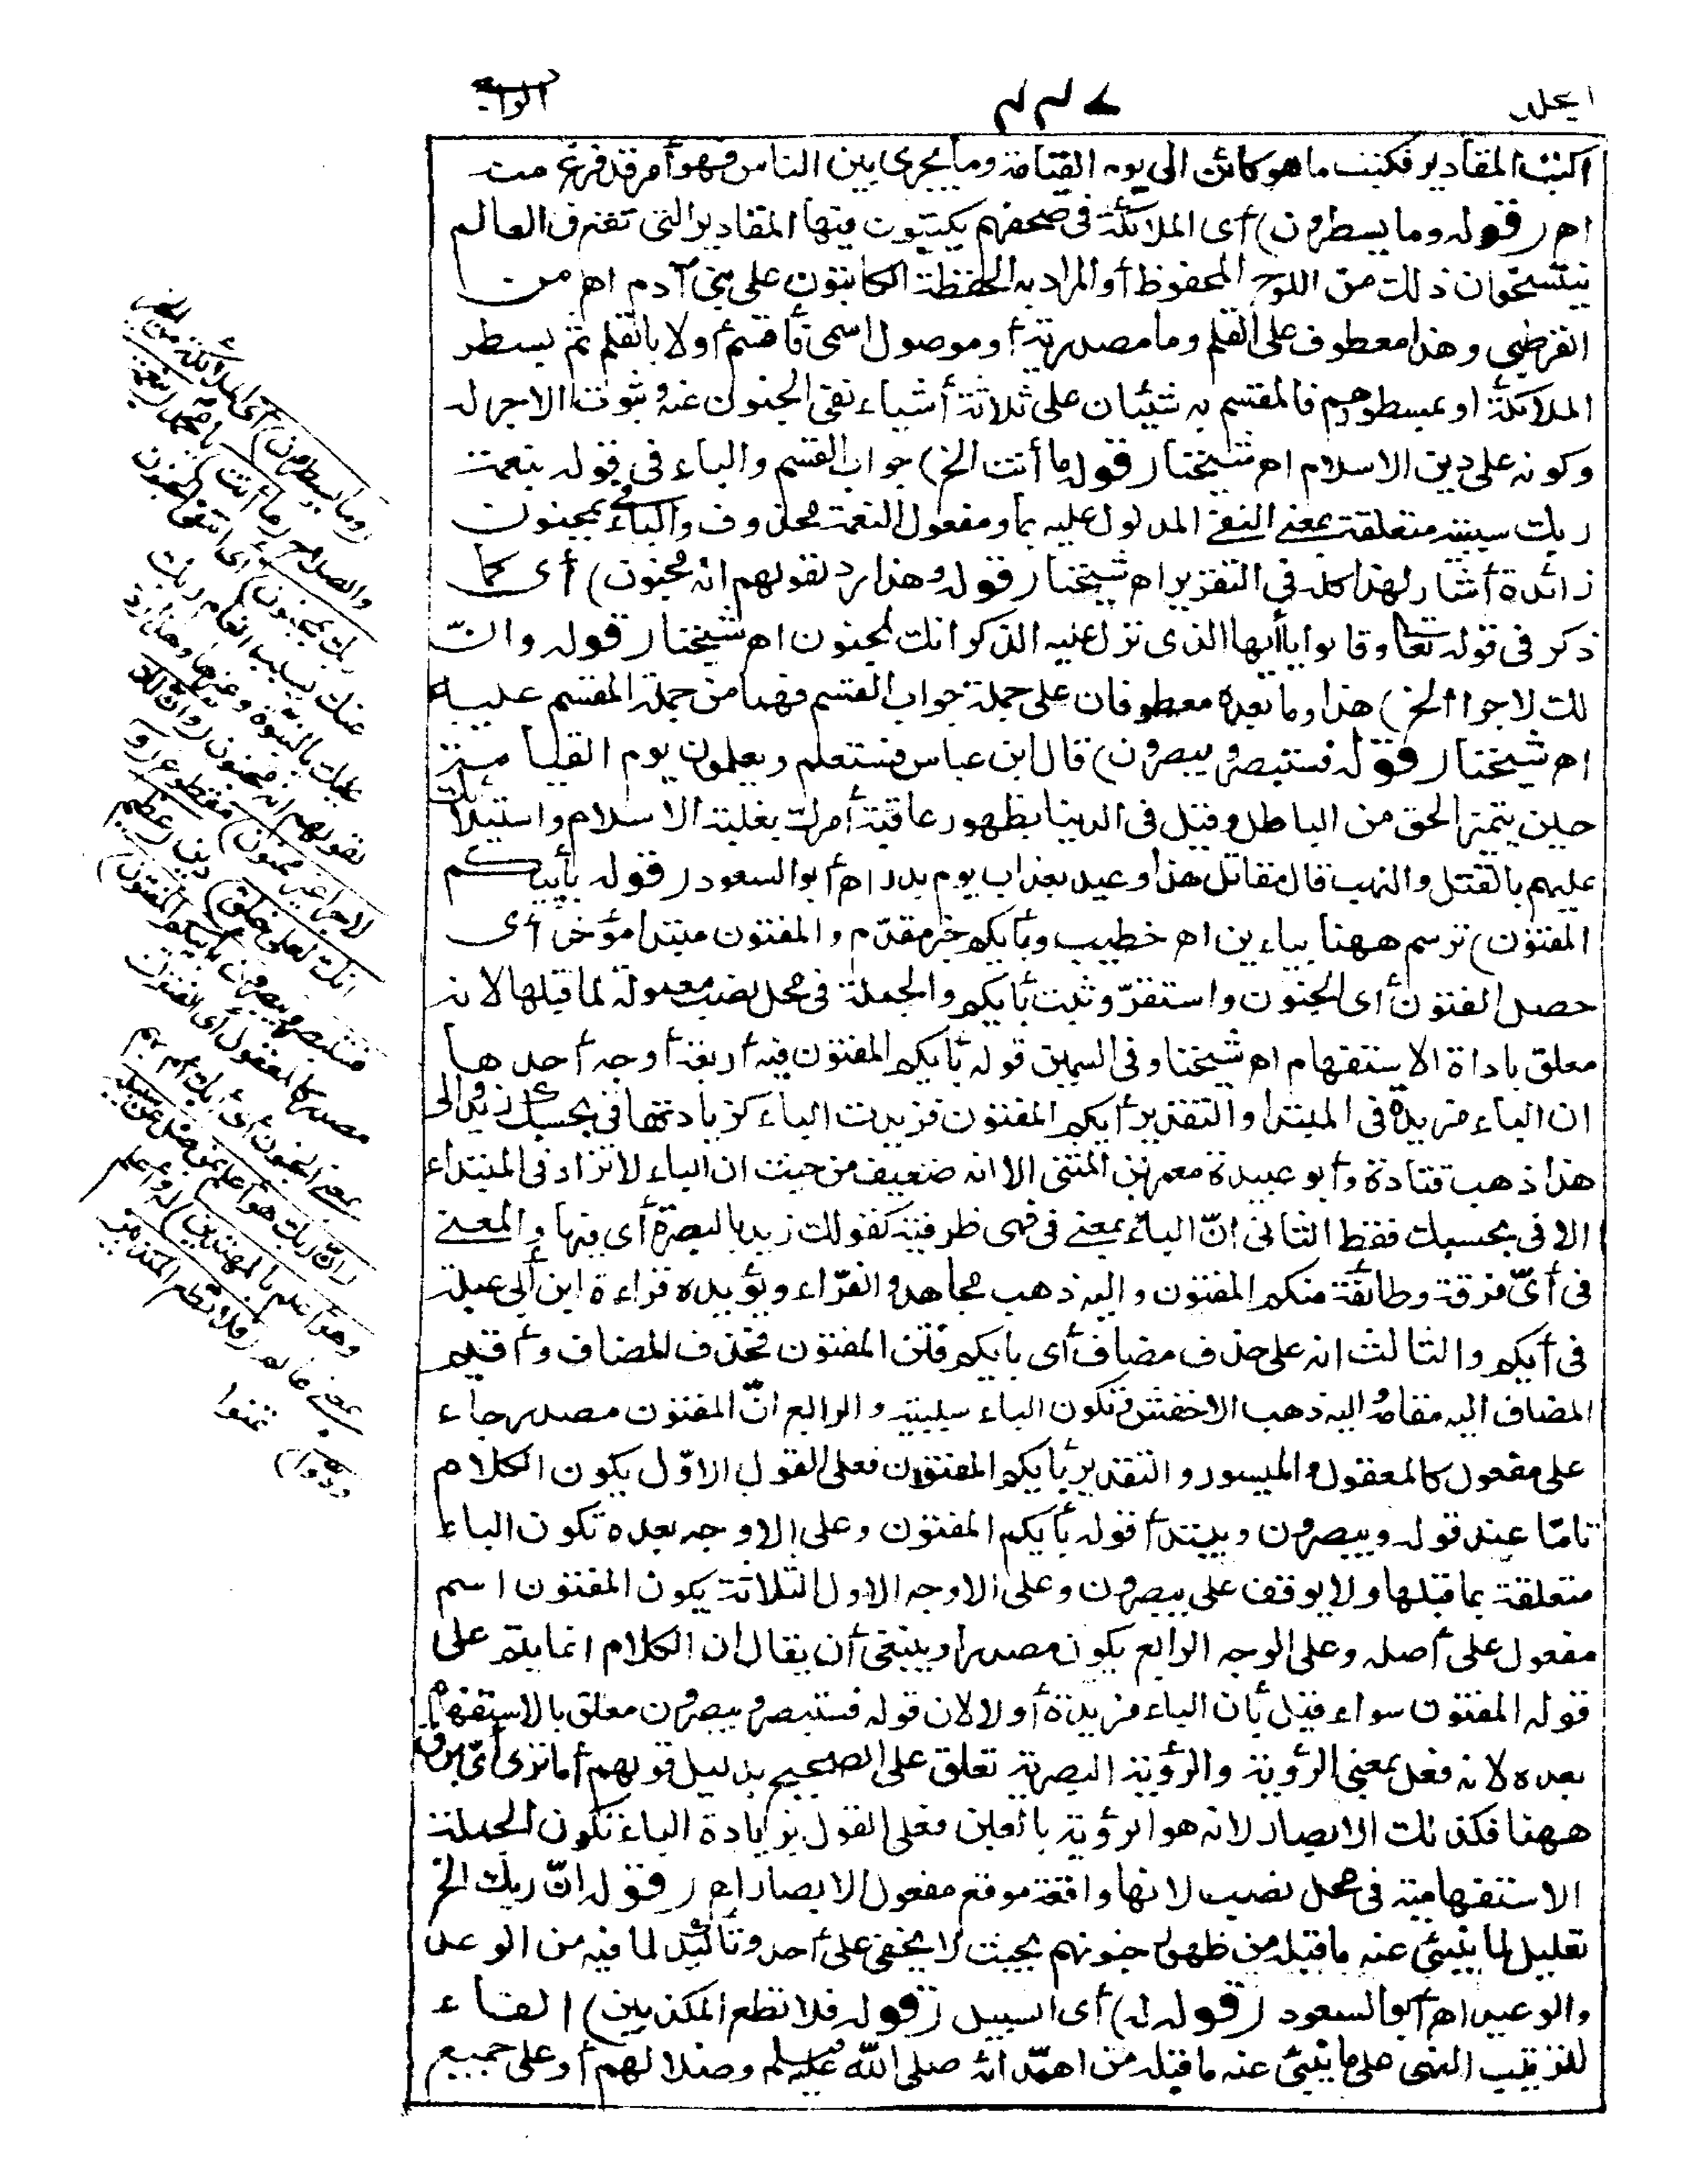 الجلد
٤٤٧
الرابع
اكتب المقادير فكتب ما هو كائن الى يوم القيامة وما يجرى بين الناس فهو أمر قد فرغ منه
اه (قوله وما يسطرون) أى الملائكة فى صحفهم يكتبون فيها المقادير التى تقع فى العالم
ينتسخون ذلك من اللوح المحفوظ أو المراد به الحفظة الكاتبون على بنى آدم اهـ من
القرطبى وهذا معطوف على القلم وما مصدرية أو موصول اسمى فأقسم أولا بالقلم ثم بسطر
الملائكة أو بمسطورهم فالمقسم به شيئان على ثلاثة أشياء نفى الجنون عنه وثبوت الاجر له
وكونه على دين الاسلام اه شيخنا (قوله ما أنت الخ) جواب القسم والباء فى قوله بنعمة
ربك سببية متعلقة بمعنى النفى المدلول عليه بما ومفعول النعمة محذوف والباء فى بمجنون
زائدة أشار لهذا كله فى التقرير اه شيخنا (قوله وهذا رد لقولهم انه مجنون) أى كما
ذكر فى قوله تعالى وقالوا يا أيها الذى نزل عليه الذكر انك لمجنون اه شيخنا (قوله وانّ
لك لاجرا الخ) هذا وما بعده معطوفان على جملة جواب القسم فهما من جملة المقسم عليه
اه شيخنا (قوله فستبصر ويبصرون) قال ابن عباس فستعلم ويعلمون يوم القيامة
حين يتميز الحق من الباطل وقيل فى الدنيا بظهور عاقبة أمرك بغلبة الاسلام واستيلائك
عليهم بالقتل والنهب قال مقاتل هذا وعيد بعذاب يوم بدر اه أبو السعود (قوله بأييكم
المفتون) ترسم ههنا بياءين اه خطيب وبأيكم خبر مقدّم والمفتون مبتدا مؤخر أى
حصل الفتون أى الجنون واستقرّ وثبت بأيكم والجملة فى محل نصب معمولة لما قبلها لانه
معلق باداة الاستفهام اه شيخنا وفى السمين قوله بأيكم المفتون فيه أربعة أوجه أحدها
ان الباء مزيدة فى المبتدا والتقدير أيكم المفتون فزيدت الباء كزيادتها فى بحسبك زيد والى
هذا ذهب قتادة وأبو عبيدة معمر بن المثنى الا انه ضعيف من حيث ان الباء لا تزاد فى المبتداء
الا فى بحسبك فقط الثانى انّ الباء بمعنى فى فهى ظرفية كقولك زيد بالبصرة أى فيها والمعنى
فى أىّ فرقة وطائفة منكم المفتون واليه ذهب مجاهد والفرّاء ويؤيده قراءة ابن أبى عبلة
فى أيكم والثالث انه على حذف مضاف أى بأيكم فتن المفتون فحذف المضاف وأقيم
المضاف اليه مقامه واليه ذهب الاخفش وتكون الباء سببية والرابع انّ المفتون مصدر جاء
على مفعول كالمعقول والميسور والتقدير بأيكم المفتون فعلى القول الاوّل يكون الكلام
تامّا عند قوله ويبصرون ويبتدأ قوله بأيكم المفتون وعلى الاوجه بعده تكون الباء
متعلقة بما قبلها ولا يوقف على يبصرون وعلى الاوجه الاول الثلاثة يكون المفتون اسم
مفعول على أصله وعلى الوجه الرابع يكون مصدرا وينبغى أن يقال ان الكلام انما يتم على
قوله المفتون سواء قيل بأن الباء مزيدة أو لا لان قوله فستبصر ويبصرون معلق بالاستفهام
بعده لانه فعل بمعنى الرؤية والرؤية البصرية تعلق على الصحيح بدليل قولهم أما ترى أىّ برق
ههنا فكذلك الابصار لانه هو الرؤية بالعين فعلى القول بزيادة الباء تكون الجملة
الاستفهامية فى محل نصب لانها واقعة موقع مفعول الابصار اه (قوله انّ ربك الخ
تعليل لما ينبئ عنه ما قبله من ظهور جنونهم بحيث لا يخفى على أحد وتأكيد لما فيه من الوعد
والوعيد اه أبو السعود (قوله له) أى السبيل (قوله فلا تطع المكذبين) الفاء
لترتيب النهى على ما ينبئ عنه ما قبله من اهتدائه صلى الله عليه وسلم وضلالهم أو على جميع
(وما يسطرون) أى الملائكة من الخير
والصلاح (ما أنت) يا محمد (بنعمة
ربك بمجنون) أى انتفى الجنون
عنك بسبب انعام ربك
عليك بالنبوّة وغيرها وهذا رد
لقولهم انه مجنون (وانّ لك
لاجرا غير ممنون) مقطوع (و
انك لعلى خلق) دين (عظيم
فستبصر ويبصرون بأييكم المفتون)
مصدر كالمعقول أى الفتون
بمعنى الجنون أى أبك أم بهم
(انّ ربك هو أعلم بمن ضل عن سبيله
وهو أعلم بالمهتدين) له وأعلم
بمعنى عالم (فلا تطع المكذبين
ودّوا) تمنوا